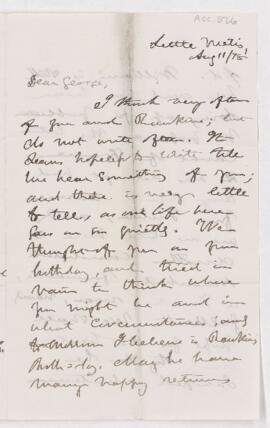 ACC. 826
Little Metis,
Aug 11/75
Dear George,
I think very often
of you and Rankine; but
do not write often. It
seems hopeless to write till
we hear something of you;
and there is very little
to tell, as our life here
goes on so quietly. We
thought of you on your
birthday, and tried in
vain to think where
you might be and in
what circumstances; and
to-morrow I believe is Rankine's
Birth-day. May he have
many happy returns